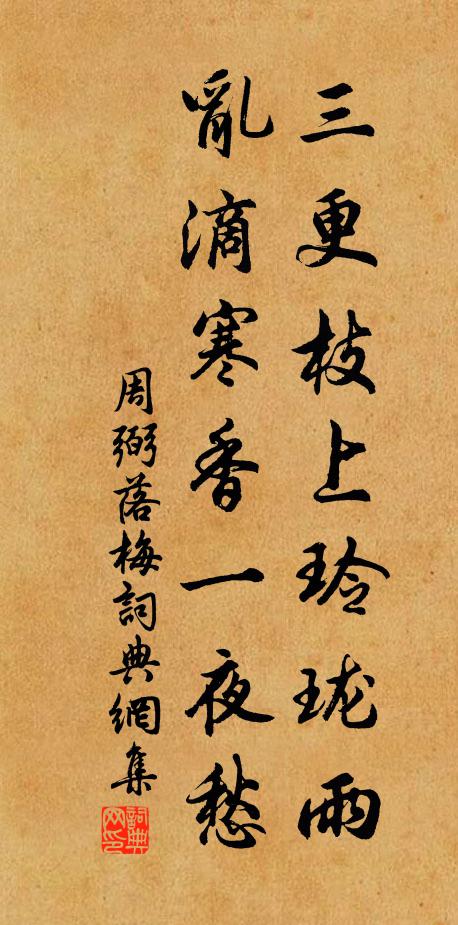 三更枝上玲珑雨
亂滴寒香一夜愁
周弼落梅詞典網集
詞典网印